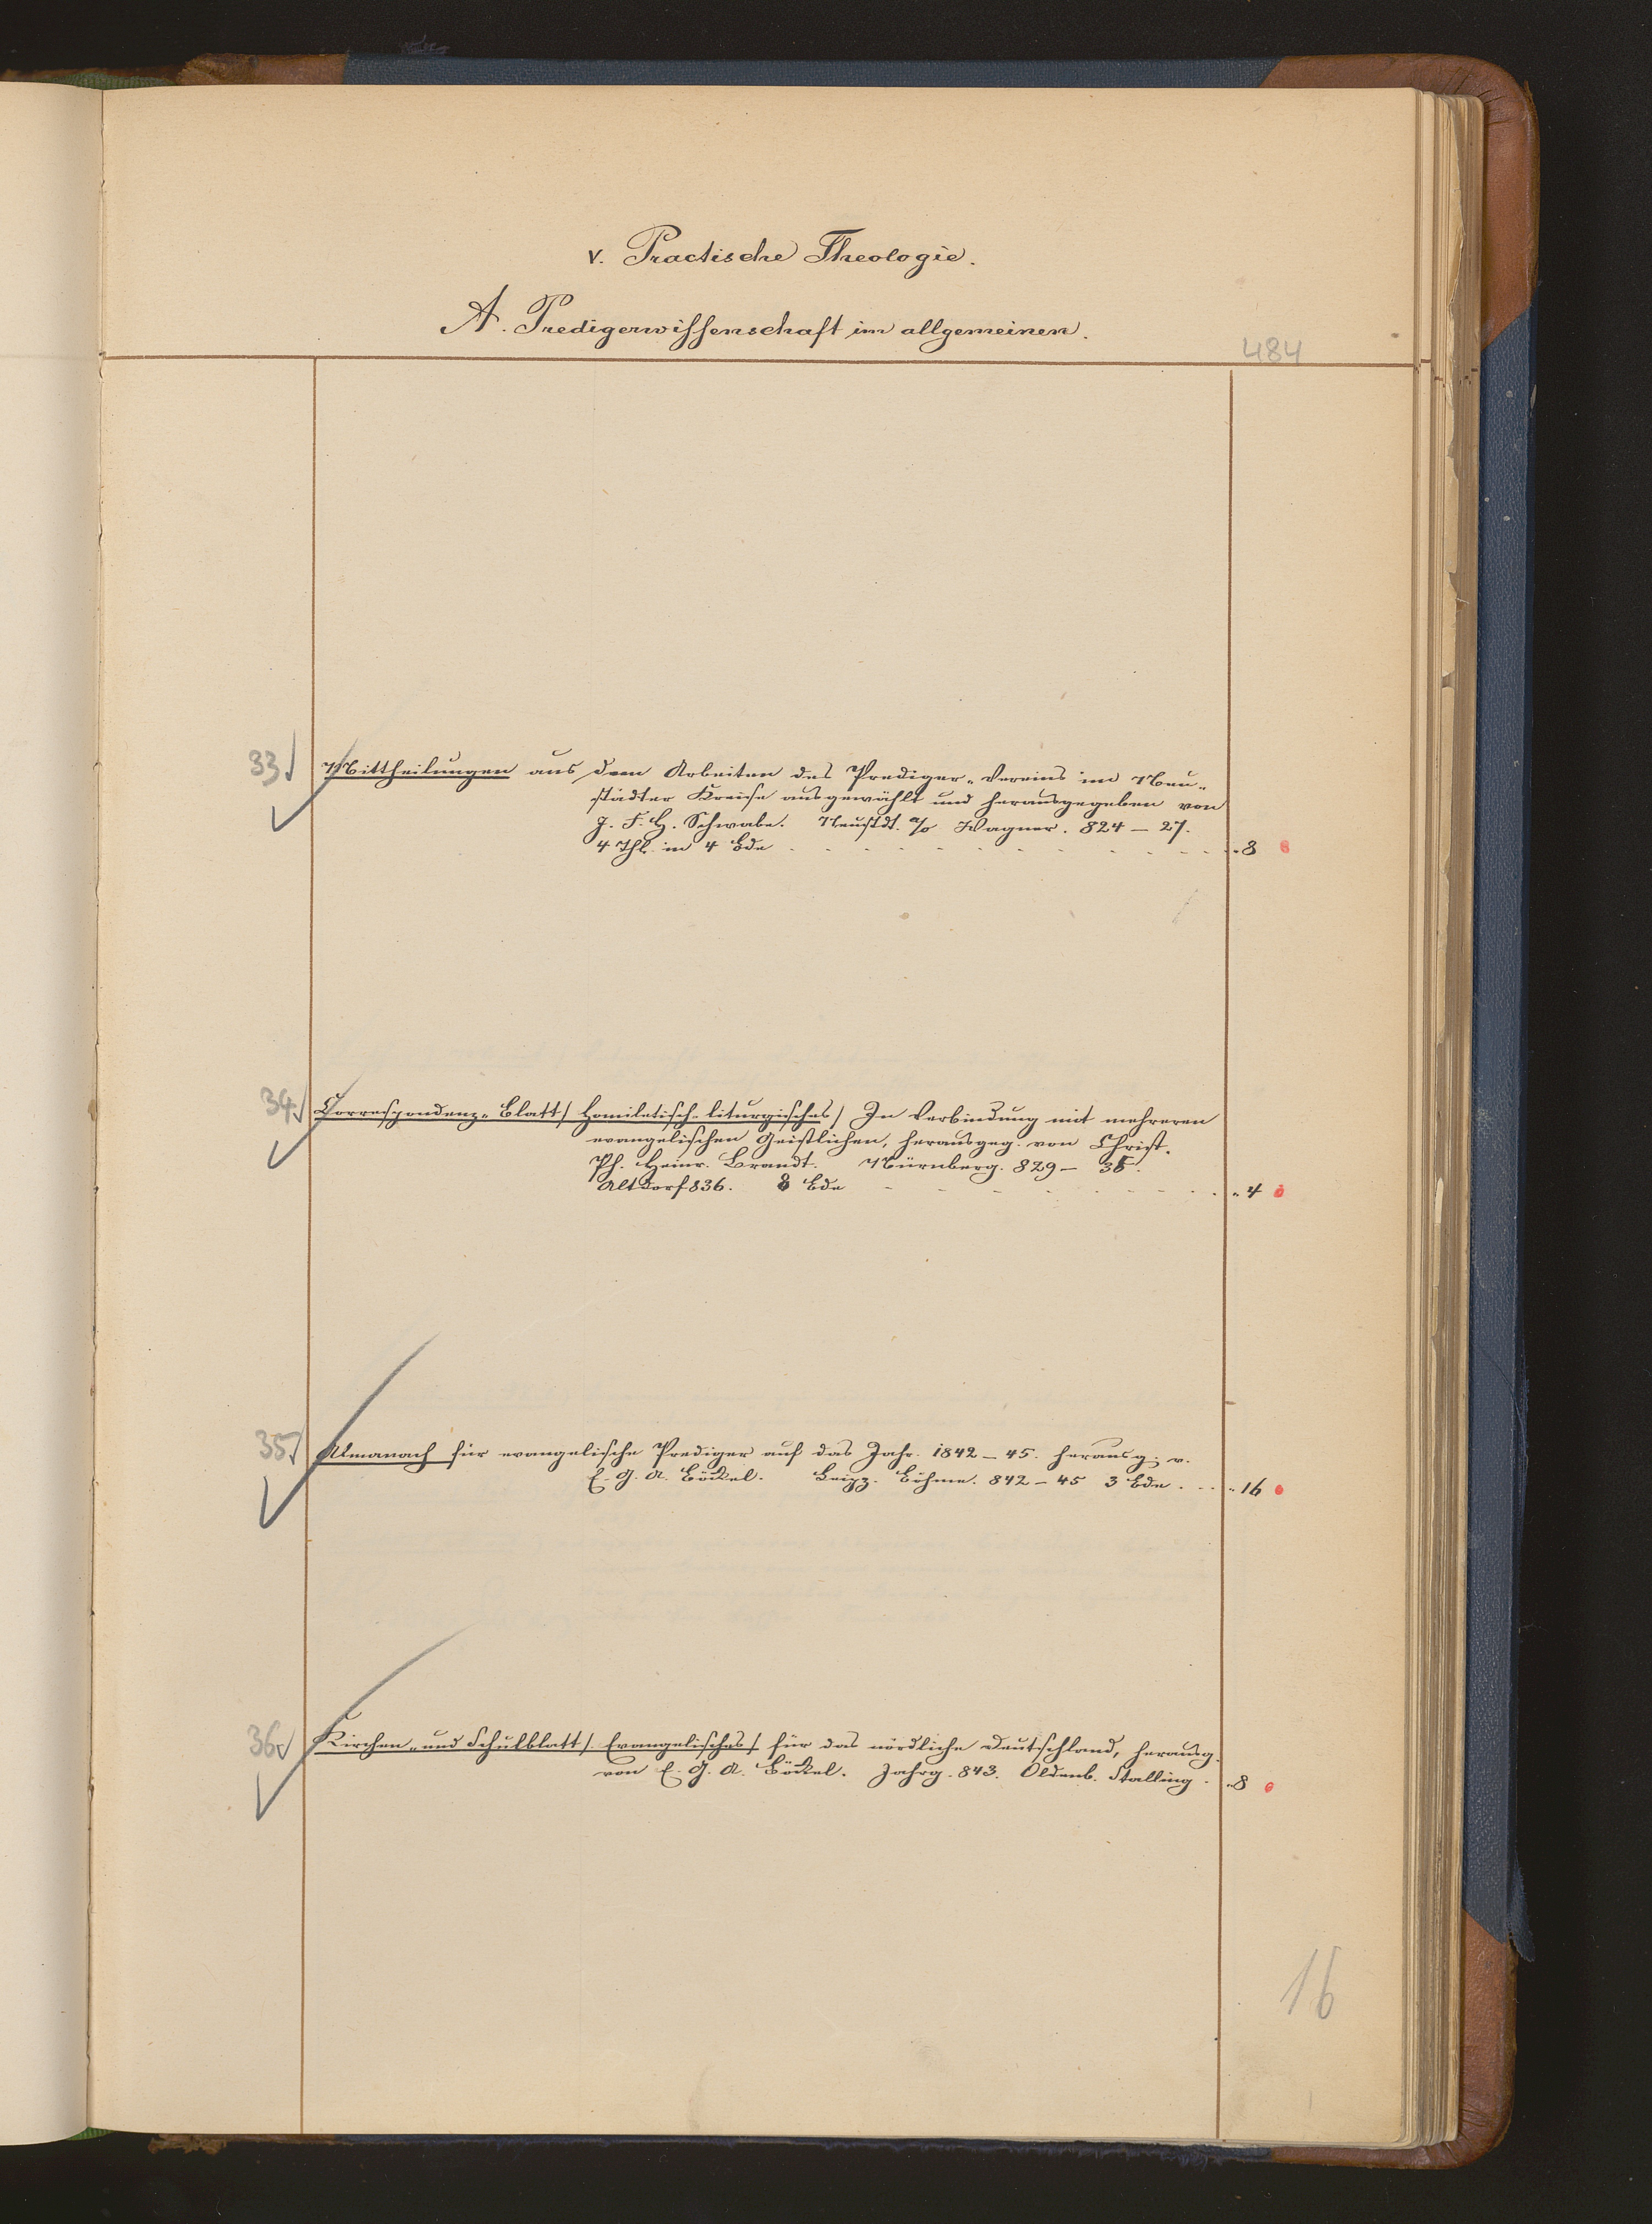 V. Practische Theologie.
A. Predigerwissenschaft im allgemeinen.
484
33 Mittheilungen aus den Arbeiten des Prediger-Vereins im Neu-
städter Kreise ausgewählt und herausgegeben von
J. F. H. Schwabe. Neustdt. a/o Wagner. 824 – 27.
4 Thl. in 4 Bde . . . . . . . . . . . . 8
34 Correspondenz-Blatt / Homiletisch-liturgisches / In Verbindung mit mehreren
evangelischen Geistlichen, herausgeg. von Christ.
Ph. Heinr. Brandt. Nürnberg. 829 – 35.
Altdorf 836. 8 Bde . . . . . . . . . 4
35 Almanach für evangelische Prediger auf das Jahr. 1842 – 45. herausg. v.
E. G. A. Böckel. Leipz. Böhme. 842 – 45 3 Bde . . . 16
36 Kirchen- und Schulblatt / Evangelisches / für das nördliche Deutschland, herausg.
von E. G. A. Böckel. Jahrg. 843. Oldenb. Stalling . 8
16